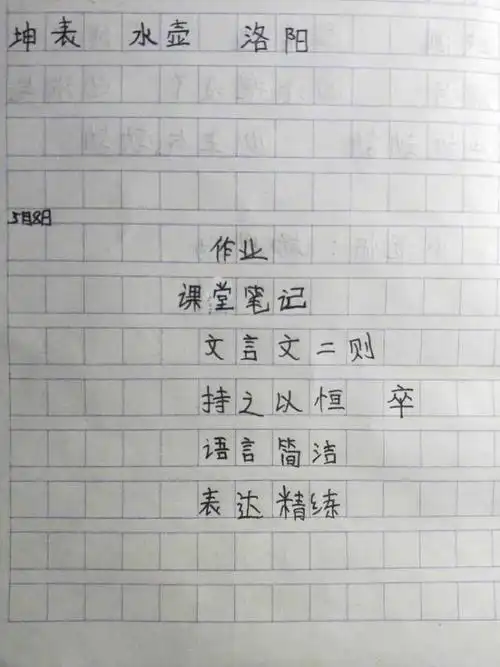 坤表 水壶 洛阳
5月8日
作业
课堂笔记
文言文二则
持之以恒 卒
语言简洁
表达精练